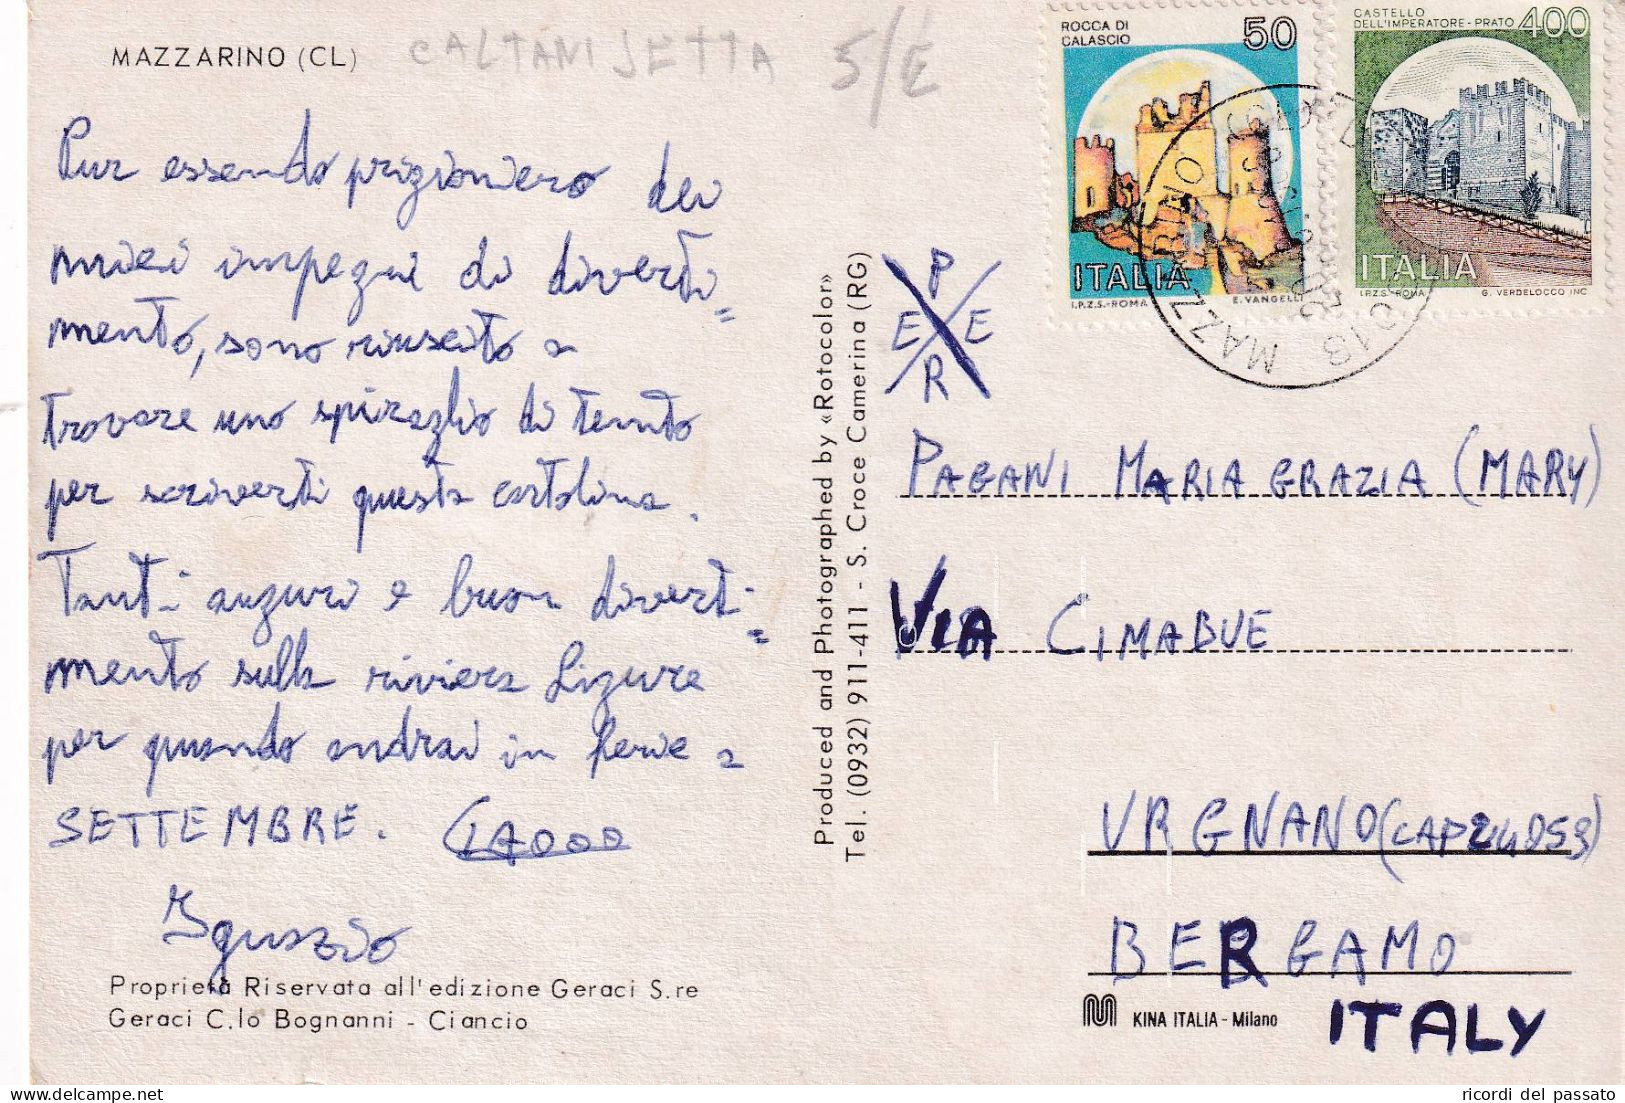 MAZZARINO (CL)
CALTANISSETTA
5/E
Pur essendo prigioniero dei
miei impegni di diverti=
mento, sono riuscito a
trovare uno spiraglio di tempo
per scriverti questa cartolina.
Tanti auguri e buon diverti=
mento sulla riviera Ligure
per quando andrai in ferie a
SETTEMBRE. CIAOOO
Ignazio
Proprietà Riservata all'edizione Geraci S.re
Geraci C.lo Bognanni - Ciancio
Produced and Photographed by «Rotocolor»
Tel. (0932) 911-411 - S. Croce Camerina (RG)
ROCCA DI
CALASCIO
50
ITALIA
I.P.Z.S.-ROMA E. VANGELLI
CASTELLO
DELL'IMPERATORE-PRATO
400
ITALIA
I.P.Z.S.-ROMA G. VERDELOCCO INC
MAZZARINO
P
E E
R
PAGANI MARIA GRAZIA (MARY)
VIA CIMABUE
URGNANO (CAP 24059)
BERGAMO
KINA ITALIA - Milano
ITALY
ricordi del passato